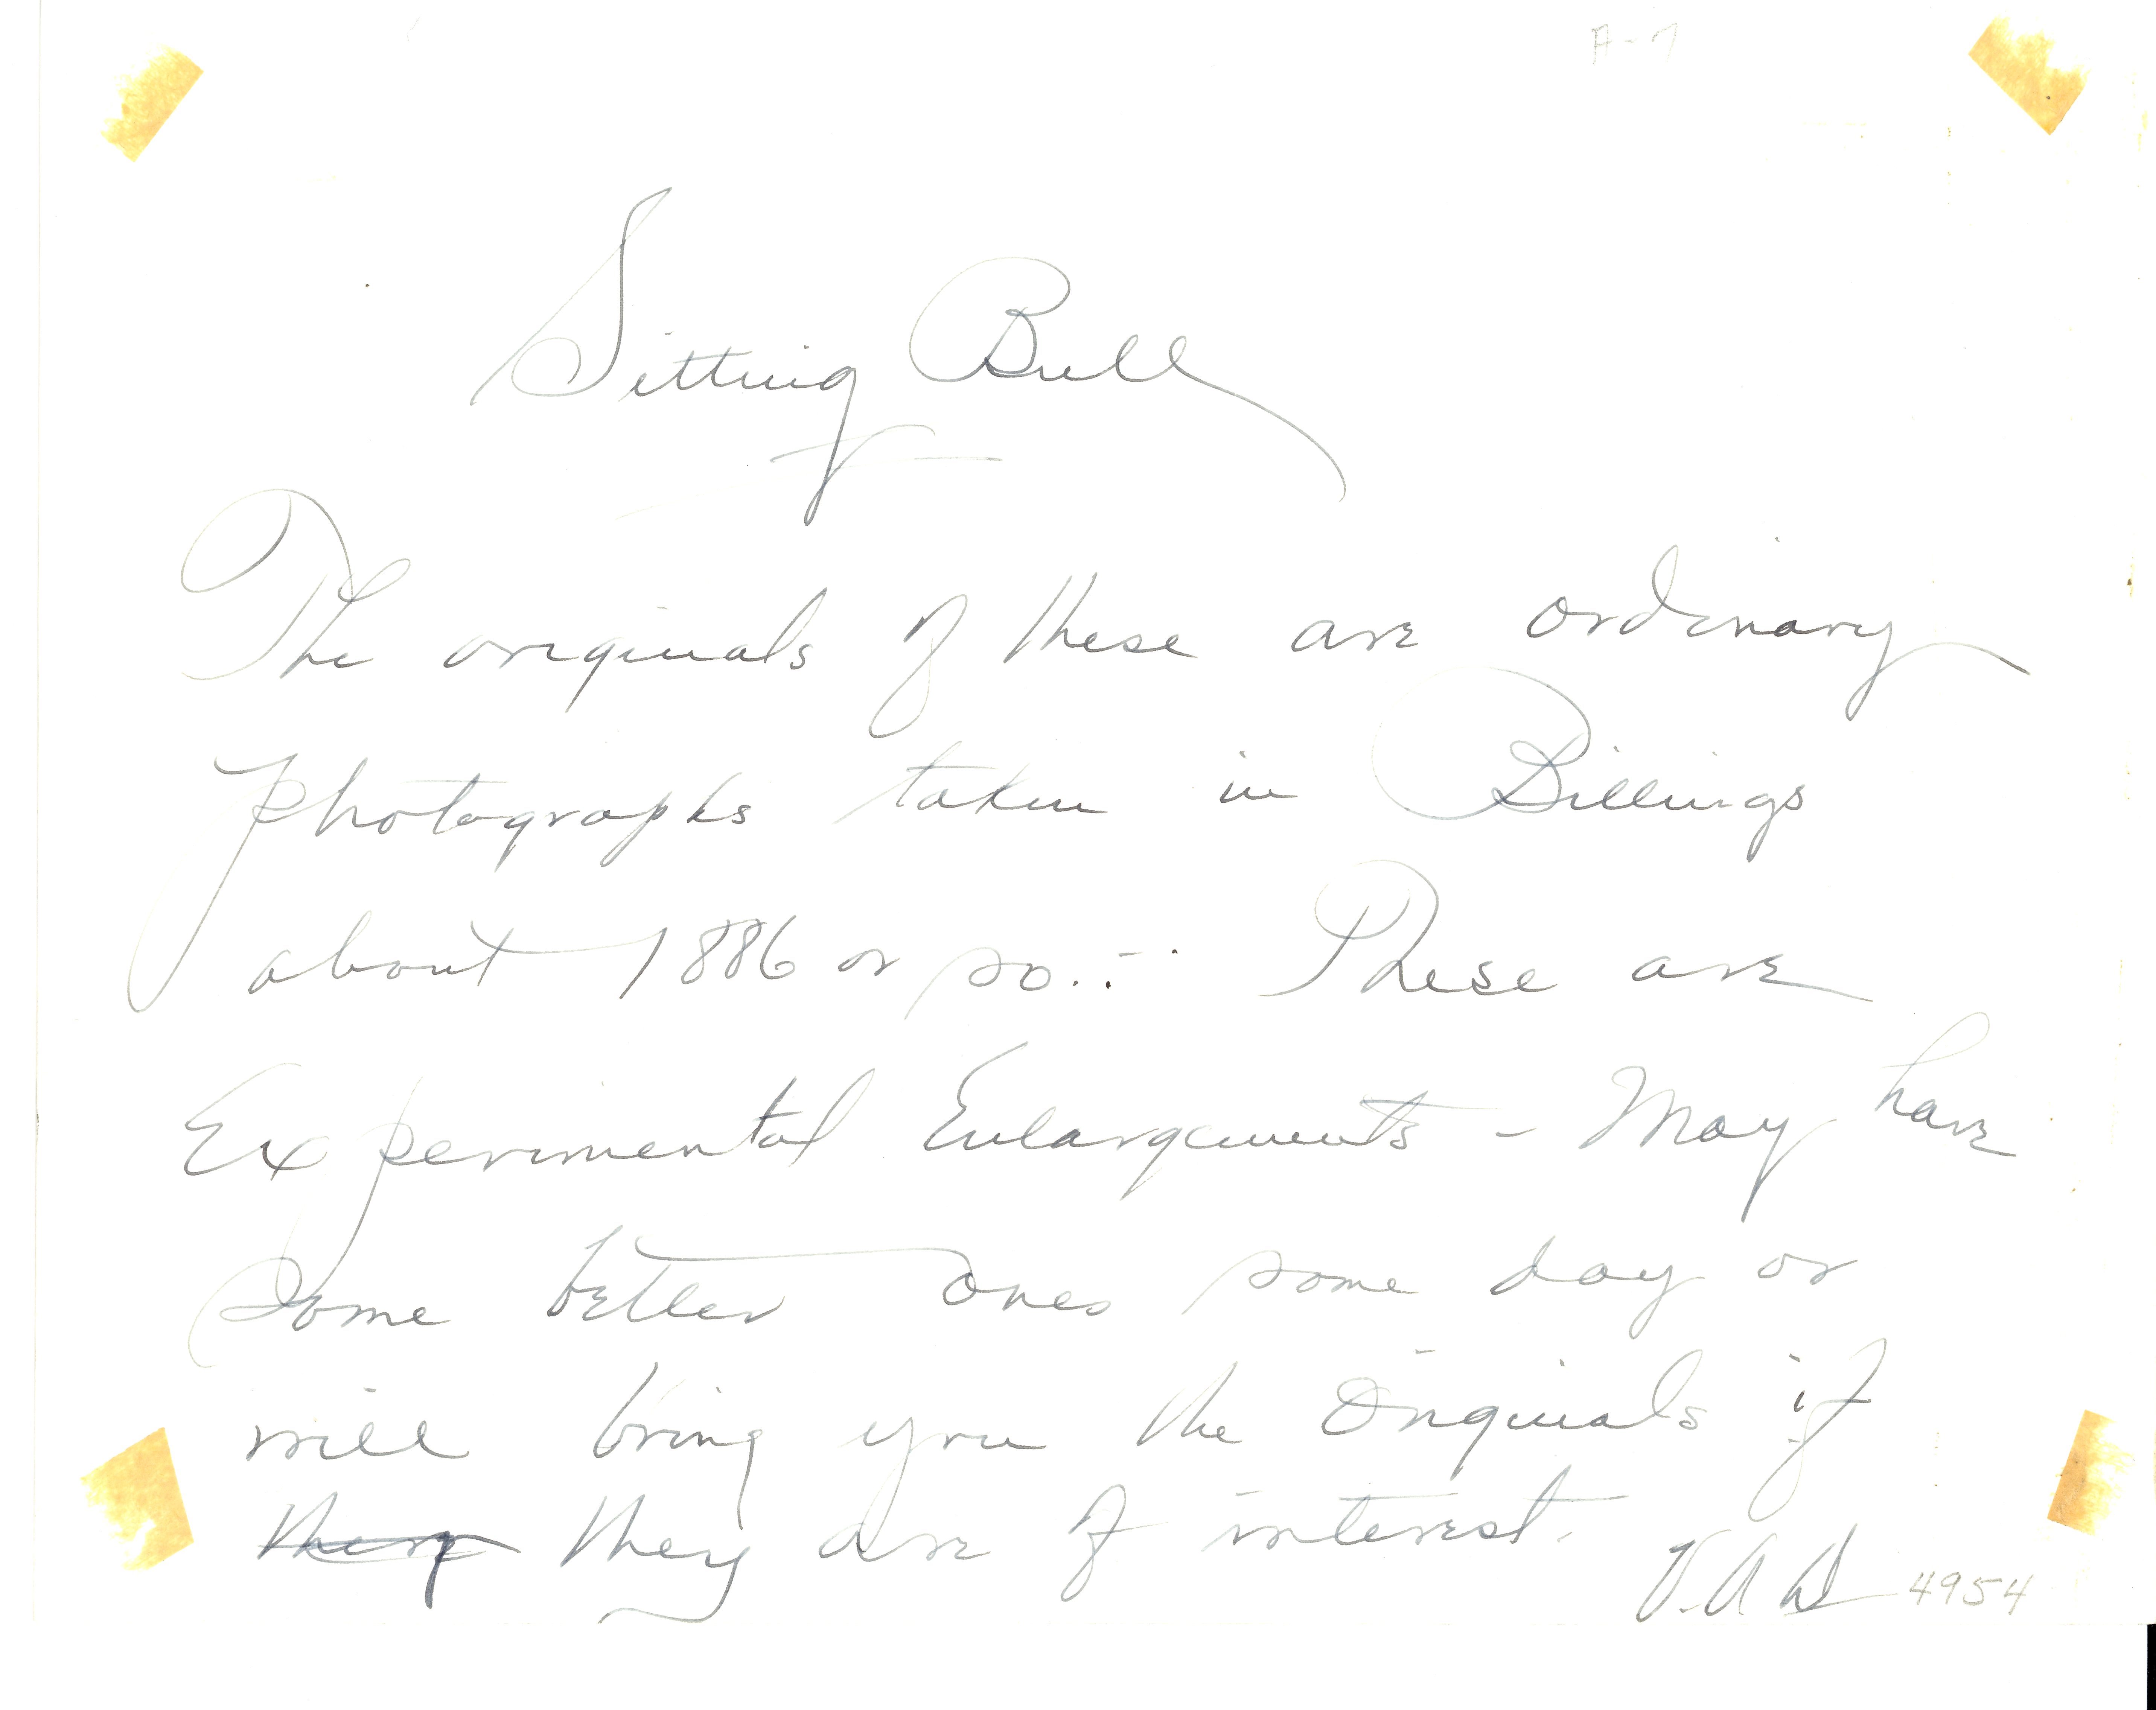 A-7
Sitting Bull
The originals of these are ordinary
photographs taken in Billings
about 1886 or so..- These are
Experimental Enlargements - May have
Some better ones some day or
will bring you the Originals if
they they are of interest.
V.A.D 4954